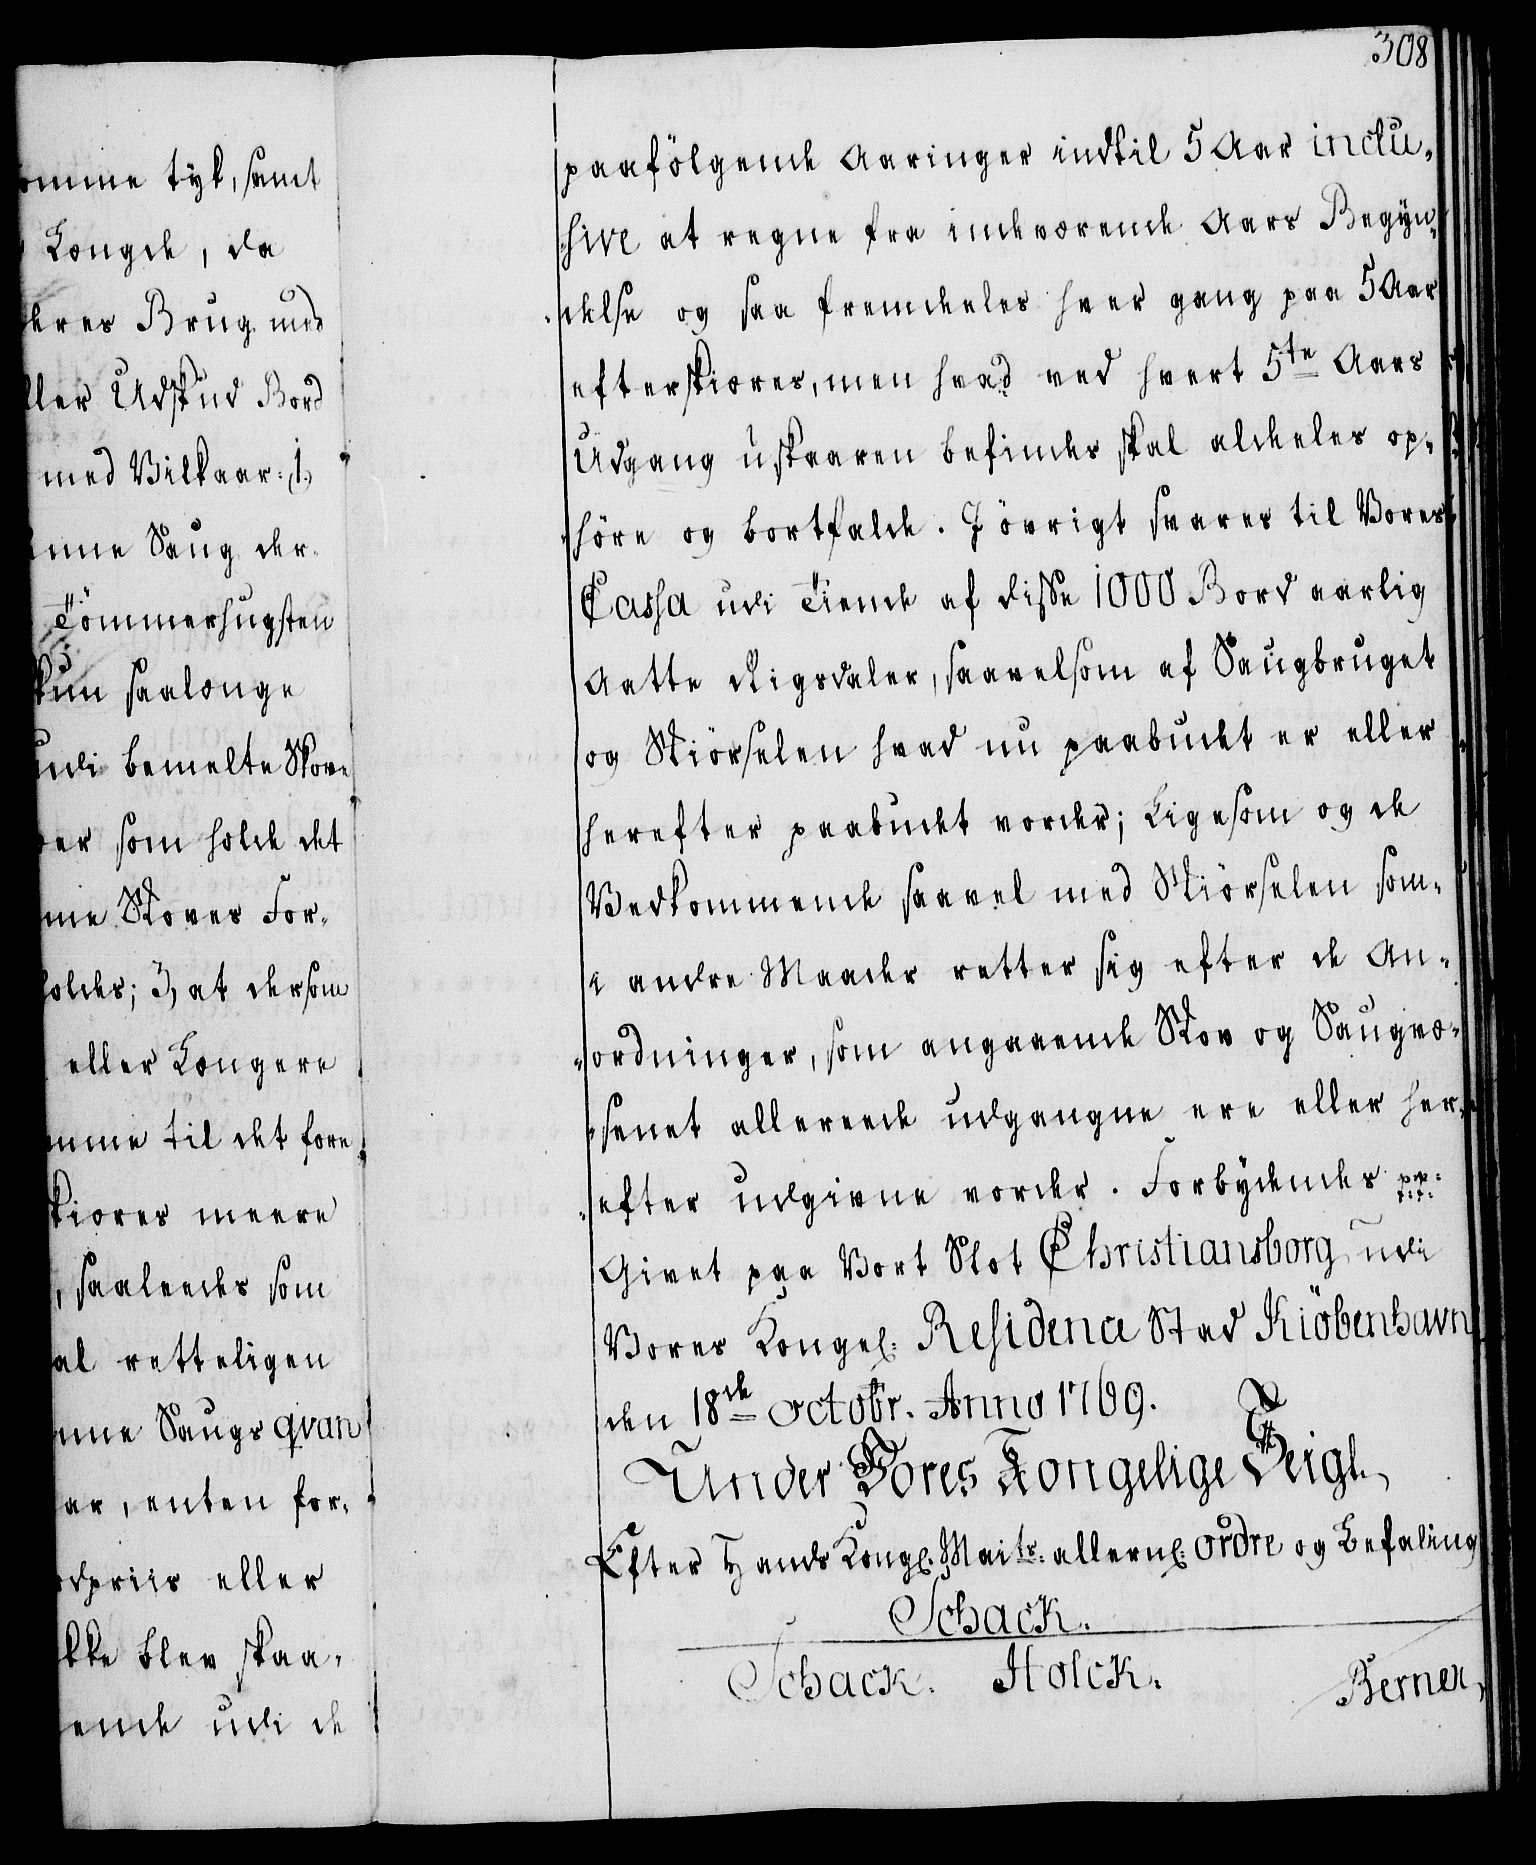 omme tyk, samt
Længde, da
deres Brug med
ller Udskud Bord
med Vilkaar: 1,
enne Saug der¬
Tömmerhugsten
kun saalænge
udi bemelte Skove
der som holde det
me Skoves For¬
holdes; 3, at dersom
eller Længere
omme til det fore
skiæres meere
, saaleedes som
al rettelig­en
nne Saugs qvan
ar, enten for¬
odpriis eller
kke blev skaa¬
ende udi de
308
paafölgende Aaringer indtil 5 Aar inclu¬
sive at regne fra indeværende Aars Begyn¬
delse og saa fremdeeles hver gang paa 5 Aar
efterskiæres, men hvad ved hvert 5te Aars
Udgang uskaaren befindes skal aldeeles op¬
höre og bortfalde. I övrigt svares til Vores
Cassa udi Tiende af disse 1000 Bord aarlig
Aatte Rigsdaler, saavelsom af Saugbruget
og Skiörselen hvad nu paabudet er eller
herefter paabudet vorder; Ligesom og de
Vedkommende saavel med Skiörselen som
i andre Maader retter sig efter de An¬
ordninger, som angaaende Skov og Saugvæ¬
senet allereede udgangne ere eller her¬
efter udgivne vorder. Forbydendes pp:
Givet paa Vort Slot Christiansborg udi
Vores Kongel: Residence Stad Kiöbenhavn
den 18de Octobr. Anno 1769.
Under Vores Kongelige Seigl,
Efter Hands Kongl: Maits: allern: ordre og Befaling
Schack.
Schack. Holck. Berner,